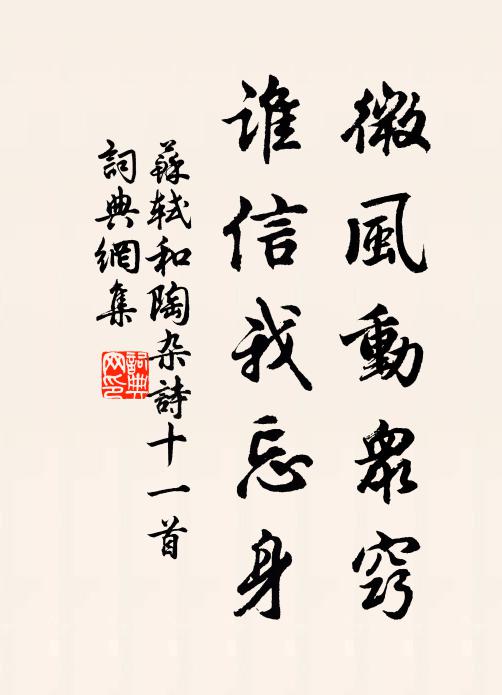 微風動眾竅
誰信我忘身
蘇軾和陶杂詩十一首
詞典網集
詞典网印